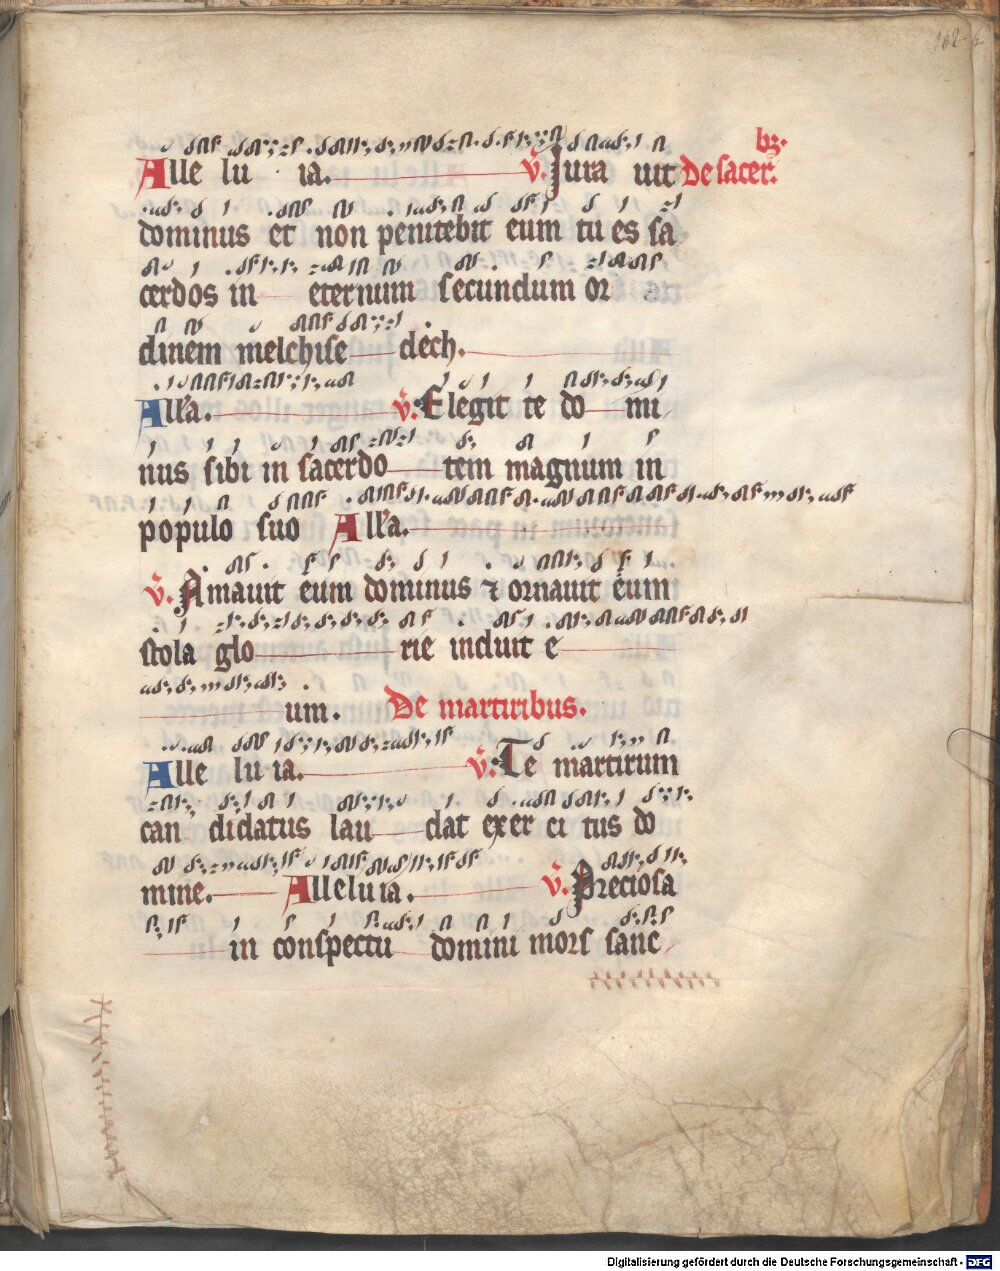 162
Alle lu ia. V. Jura uit De sacer.
bz.
dominus et non penitebit eum tu es sa
cerdos in eternum secundum or
dinem melchise dech.
All'a. V. Elegit te do mi
nus sibi in sacerdo tem magnum in
populo suo All'a.
V. Amauit eum dominus ⁊ ornauit eum
stola glo rie induit e
um. De martiribus.
Alle lu ia. V. Te martirum
can didatus lau dat exer ci tus do
mine. Alleluia. V. Preciosa
in conspectu domini mors sanc
Digitalisierung gefördert durch die Deutsche Forschungsgemeinschaft - DFG